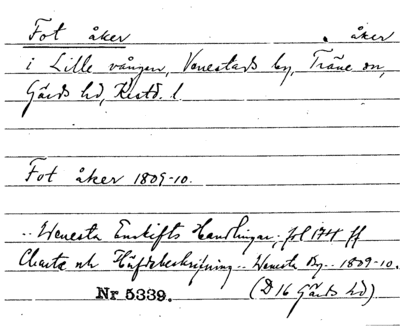 Fot åker . åker
i Lille vången, Venestads by, Träne sn,
Gärds hd, Kristd. l.
Fot åker 1809-10.
.. Wenesta Enskifts Handlingar, fol 174 ff
Charta och Häfdebeskrifning .. Wenesta By .. 1809-10.
Nr 5339. (D 16 Gärds hd).